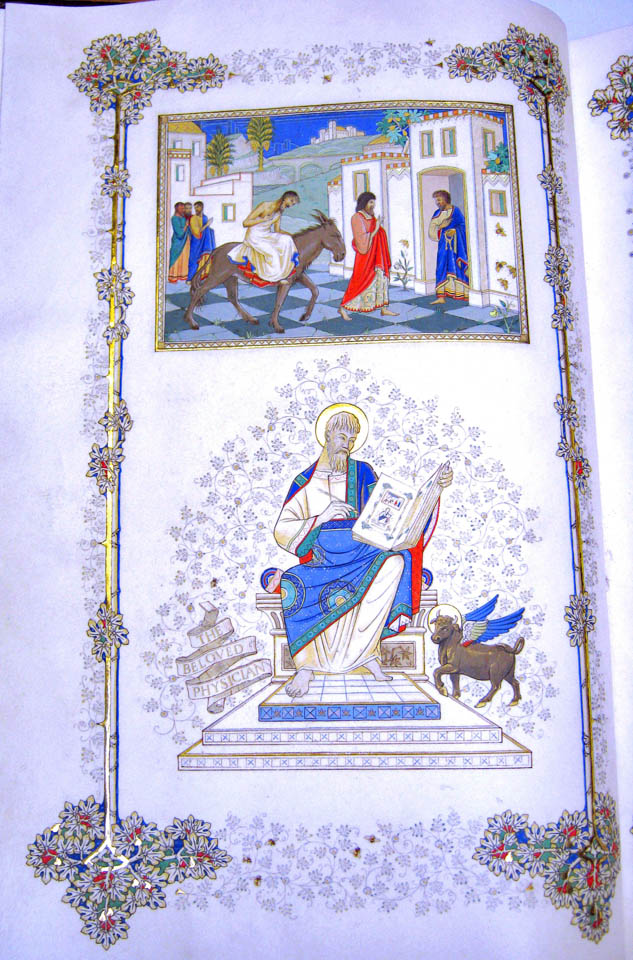 THE
BELOVED
PHYSICIAN